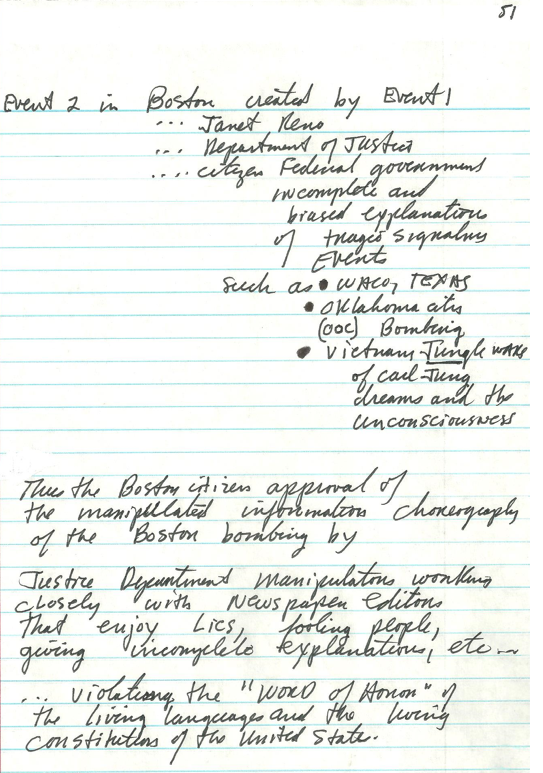 51
Event 2 in Boston created by Event 1
... Janet Reno
... Department of Justice
.... citizen Federal government
incomplete and
biased explanations
of tragic
Events
such as • WACO, TEXAS
• Oklahoma city
(OOC) Bombing
• Vietnam-Jungle wars
of carl-Jung
dreams and the
unconsciousness
Thus the Boston citizen approval of
the manipullated information choreography
of the Boston bombing by
Justice Department manipulators working
closely with Newspaper editors
that enjoy Lies, fooling people,
giving incomplete explanations, etc...
... violating the "WORD of Honor" of
the living languages and the living
constitution of the United State.